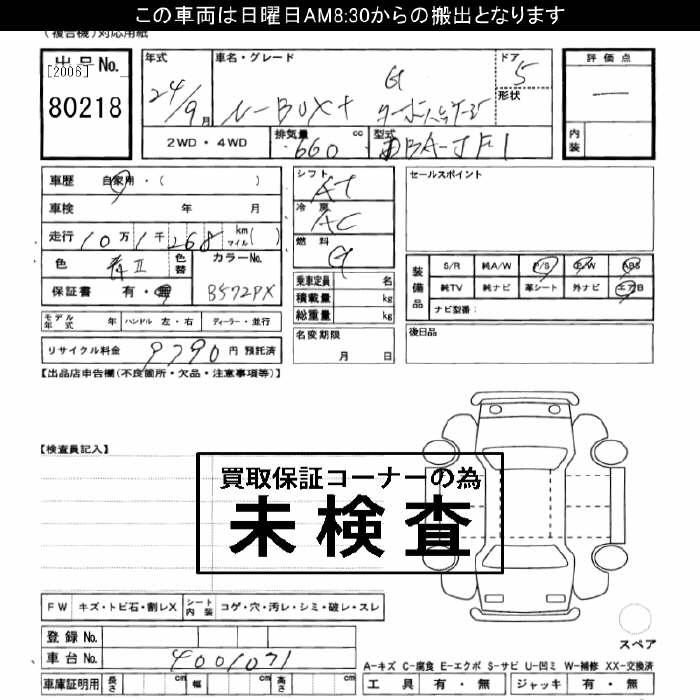 この車両は日曜日AM8:30からの搬出となります
(複合機)対応用紙
出品No.
[2006]
80218
年式
24/9月
車名・グレード
N-BOX+
G
ターボパッケージ
ドア
5
形状
評価点
内装
2WD・4WD
排気量
660
cc
型式
DBA-JF1
車歴
自家用・( )
車検
年 月
走行
10万1千268
km
マイル
( )
色
青II
色替
カラーNo.
B572PX
保証書
有・無
モデル年式
年
ハンドル
左・右
ディーラー・並行
リサイクル料金
9790
円 預託済
シフト
AT
冷房
AC
燃料
G
乗車定員
名
積載量
kg
総重量
kg
名変期限
月 日
セールスポイント
装備品
S/R
純A/W
P/S
P/W
ABS
純TV
純ナビ
革シート
外ナビ
エアB
ナビ型番:
後日品
【出品店申告欄(不良個所・欠品・注意事項等)】
【検査員記入】
買取保証コーナーの為
未検査
FW
キズ・トビ石・割レX
シート内装
コゲ・穴・汚レ・シミ・破レ・スレ
登録No.
車台No.
4001071
車庫証明用
長さ
cm
幅
cm
高さ
cm
スペア
A-キズ C-腐食 E-エクボ S-サビ U-凹ミ W-補修 XX-交換済
工具
有・無
ジャッキ
有・無